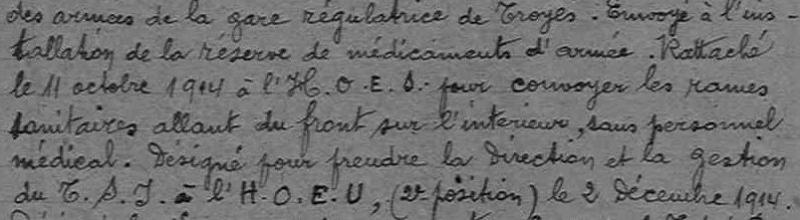 des armées de la gare régulatrice de Troyes. Envoyé à l'ins-
tallation de la réserve de médicaments d'armée. Rattaché
le 11 octobre 1914 à l'H.O.E.S. pour convoyer les rames
sanitaires allant du front sur l'intérieur, sans personnel
médical. Désigné pour prendre la Direction et la gestion
du T.S.J. à l'H.O.E.U, (2e position) le 2 Décembre 1914.